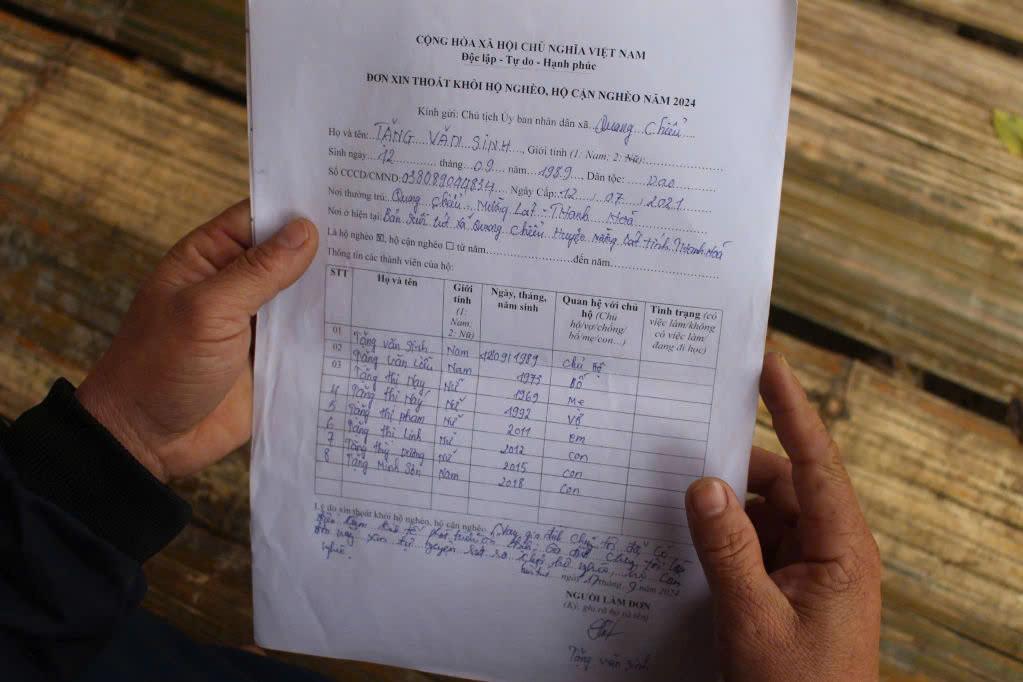 CỘNG HÒA XÃ HỘI CHỦ NGHĨA VIỆT NAM
Độc lập - Tự do - Hạnh phúc
ĐƠN XIN THOÁT KHỎI HỘ NGHÈO, HỘ CẬN NGHÈO NĂM 2024
Kính gửi: Chủ tịch Ủy ban nhân dân xã Quang Chiểu
Họ và tên: TẶNG VĂN SINH, Giới tính (1: Nam; 2: Nữ):
Sinh ngày 12 tháng 09 năm 1989, Dân tộc: Dao
Số CCCD/CMND: 038089044834 Ngày Cấp: 12 / 07 / 2021
Nơi thường trú: Quang Chiểu - Mường Lát - Thanh Hoá
Nơi ở hiện tại: Bản suối tút xã Quang Chiểu Huyện Mường Lát tỉnh Thanh Hoá
Là hộ nghèo ☒, hộ cận nghèo ☐ từ năm đến năm
Thông tin các thành viên của hộ:
STT Họ và tên Giới tính (1: Nam; 2: Nữ) Ngày, tháng, năm sinh Quan hệ với chủ hộ (Chủ hộ/vợ/chồng/bố/mẹ/con...) Tình trạng (có việc làm/không có việc làm/đang đi học)
01 Tặng văn Sinh Nam 12091989 Chủ hộ
02 Tặng văn Nam 1973 Bố
03 Tặng thị Nảy Nữ 1969 Mẹ
4 Tặng thị Nữ 1992 Vợ
5 Tặng thị phạm Nữ 2011 em
6 Tặng thị Linh Nữ 2012 con
7 Tặng thùy Dương Nữ 2015 con
8 Tặng Minh Sơn Nam 2018 Con
Lý do xin thoát khỏi hộ nghèo, hộ cận nghèo: Nay gia đình Chúng tôi đã có
kinh tế phát triển ổn Gia đình Chúng tôi
xin tự nguyện
nghèo.
ngày 17 tháng 9 năm 2024
NGƯỜI LÀM ĐƠN
(Ký, ghi rõ họ và tên)
Tặng văn Sinh